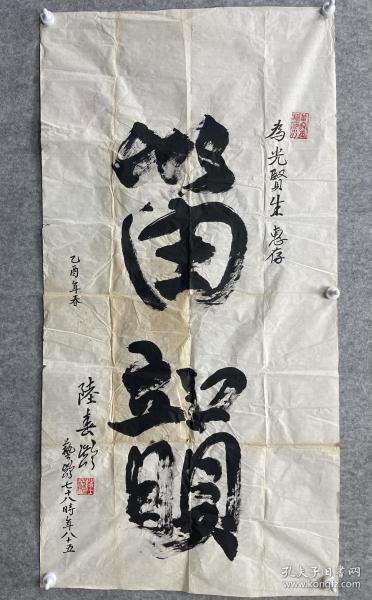 為光賢生 惠存
笛韻
乙酉年春
陸春齡
藝齡七十八時年八十五
孔夫子旧书网